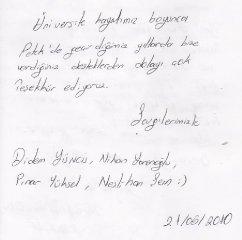 Üniversite hayatımız boyunca
Polek'de geçirdiğimiz yıllarda bize
verdiğiniz desteklerden dolayı çok
teşekkür ediyoruz.
Sevgilerimizle
Didem YÜNCÜ, Nihan
Pınar Yüksel, Neslihan Şen :)
21/06/2010